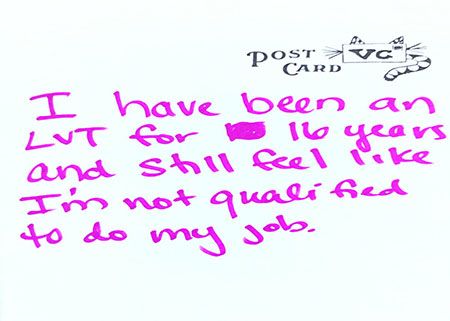 POST VG
CARD
I have been an
LVT for 16 years
and still feel like
I'm not qualified
to do my job.